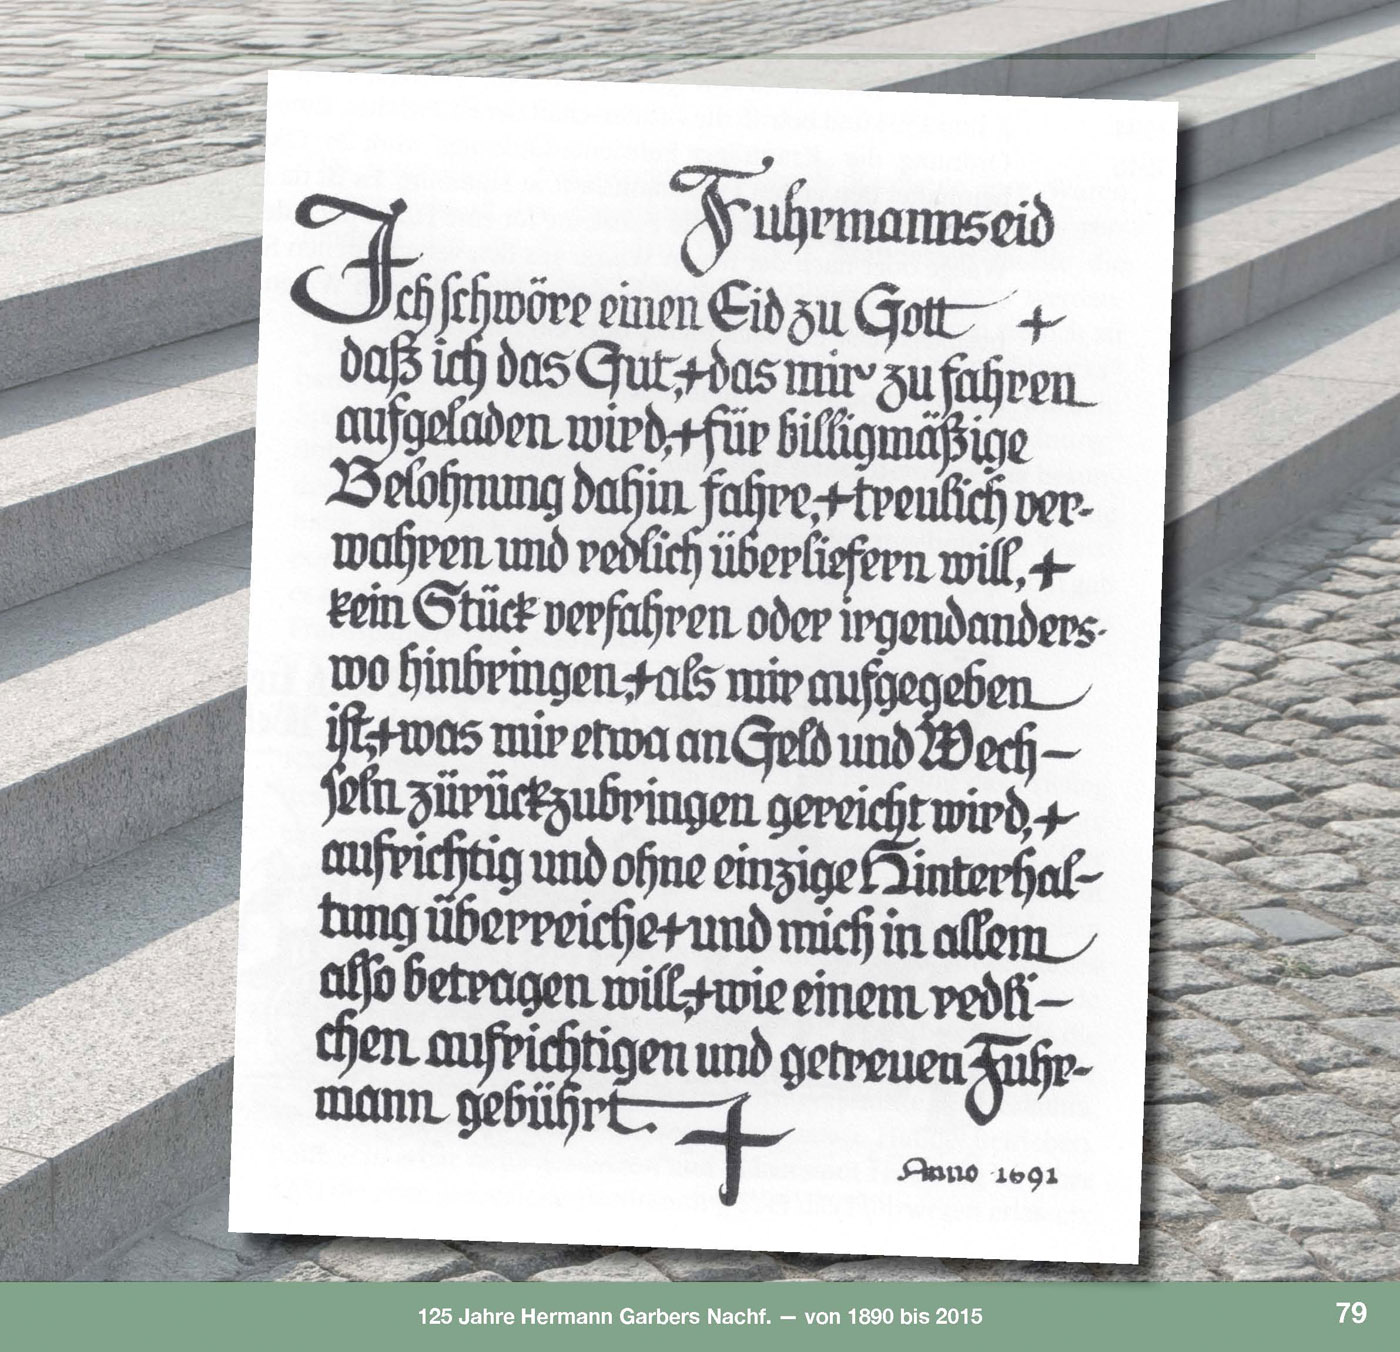 Fuhrmannseid
Ich schwöre einen Eid zu Gott +
daß ich das Gut,+das mir zu fahren
aufgeladen wird,+für billigmäßige
Belohnung dahin fahre,+treulich ver-
wahren und redlich überliefern will,+
kein Stück verfahren oder irgendanders-
wo hinbringen,+als mir aufgegeben
ist,+was mir etwa an Geld und Wech-
seln zürückzubringen gereicht wird,+
aufrichtig und ohne einzige Hinterhal-
tung überreiche+und mich in allem
also betragen will,+wie einem redli-
chen aufrichtigen und getreuen Fuhr-
mann gebührt. +
Anno 1691
125 Jahre Hermann Garbers Nachf. – von 1890 bis 2015
79